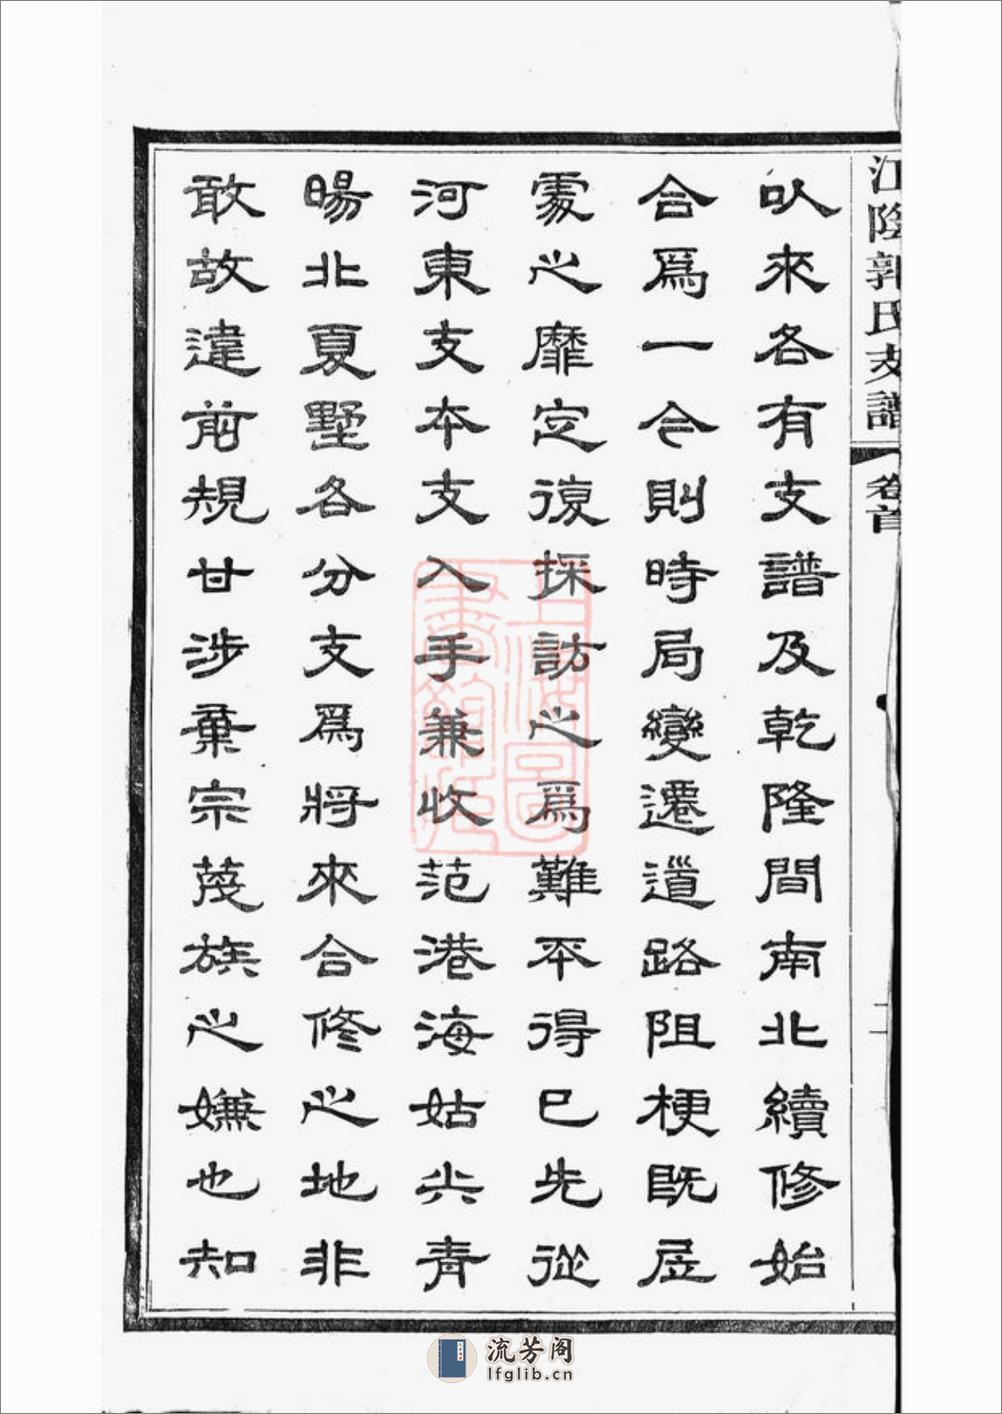 江陰郭氏支譜 卷首 二
㕥來各有支譜及乾隆間南北續修始
合爲一今則時局變遷道路阻梗既居
處之靡定復採訪之爲難不得已先從
河東支本支入手兼收范港海姑尖青
暘北夏墅各分支爲將來合修之地非
敢故違前規甘涉棄宗蔑族之嫌也知
上海圖書館藏
流芳阁
lfglib.cn